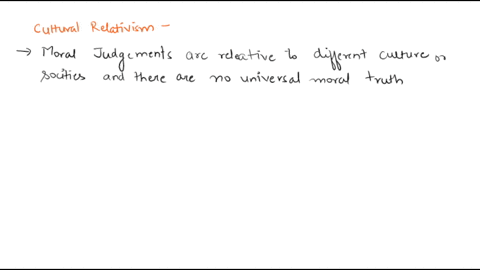 Cultural Relativism -
→ Moral Judgements are relative to different culture or
socities and there are no universal moral truth